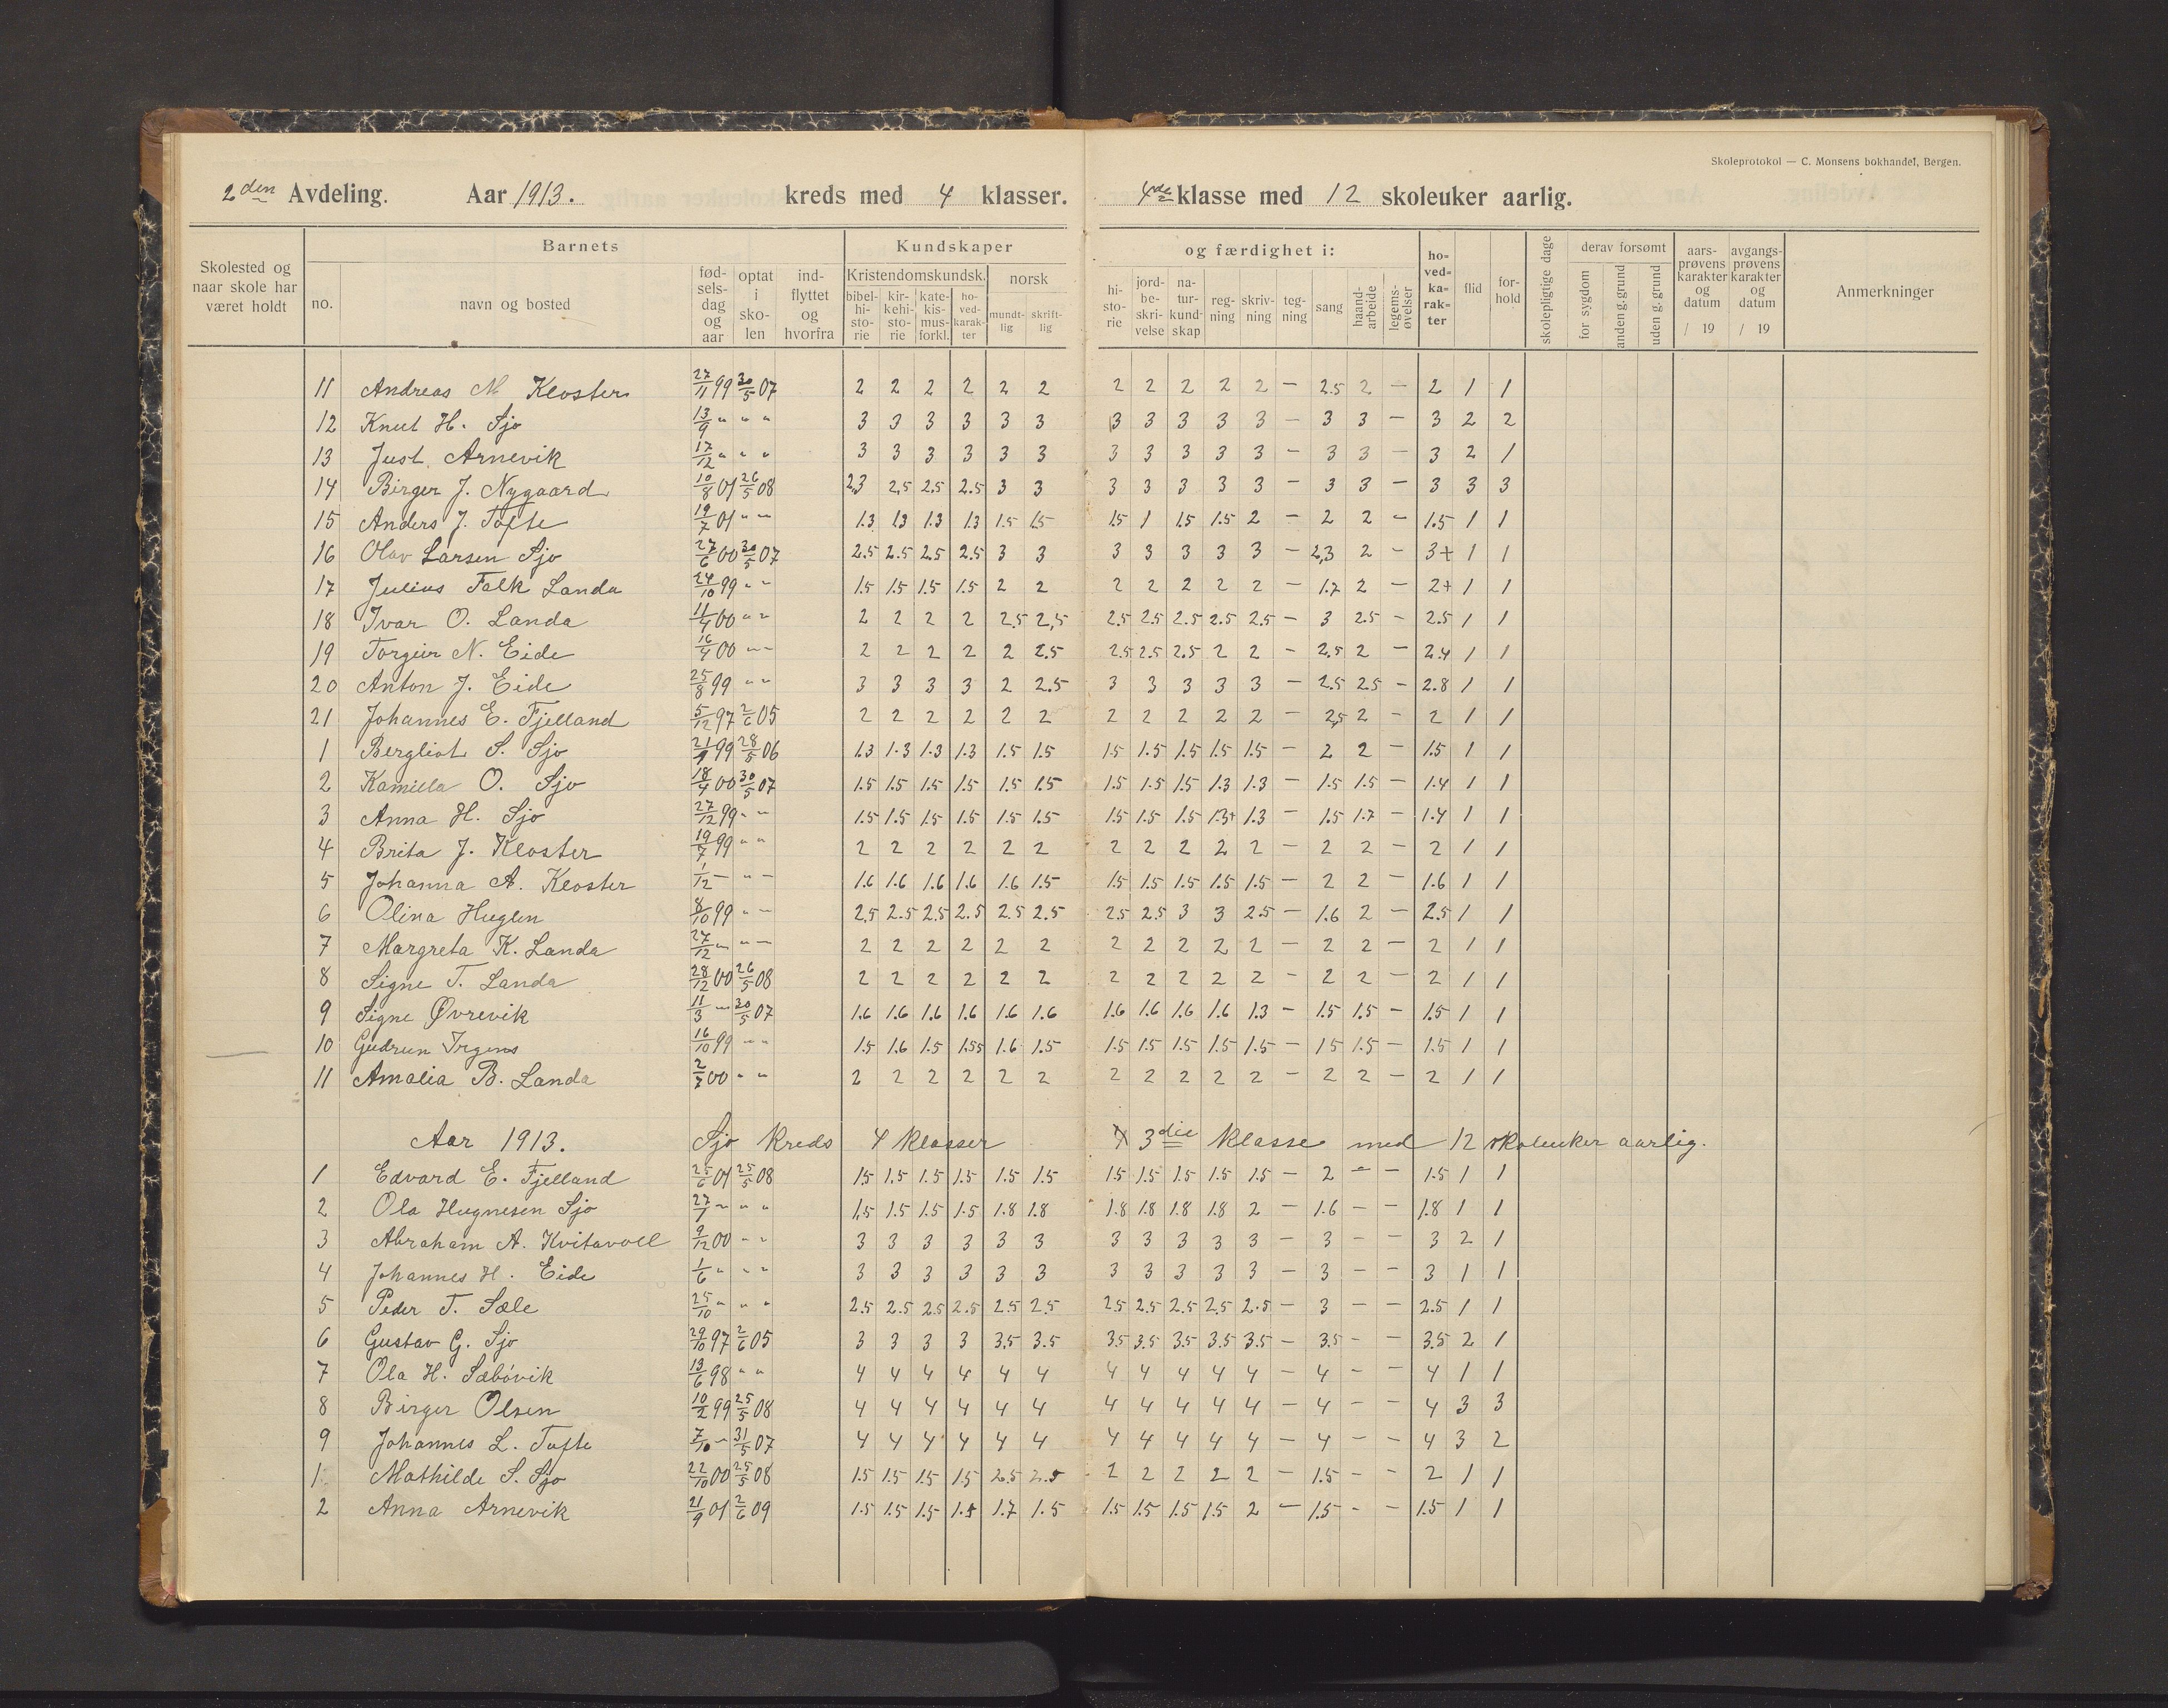 Skoleprotokol — C. Monsens bokhandel, Bergen.
2den Avdeling. Aar 1913. kreds med 4 klasser. 4de klasse med 12 skoleuker aarlig.
Skolested og naar skole har været holdt
Barnets
no. navn og bosted fødselsdag og aar optat i skolen indflyttet og hvorfra
Kundskaper og færdighet i:
Kristendomskundsk. norsk
bibelhistorie kirkehistorie katekismusforkl. hovedkarakter mundtlig skriftlig
historie jordbeskrivelse naturkundskap regning skrivning tegning sang haandarbeide legemsøvelser
hovedkarakter flid forhold skolepligtige dage
derav forsømt
for sygdom anden g. grund uden g. grund
aarsprøvens karakter og datum / 19
avgangsprøvens karakter og datum / 19
Anmerkninger
11 Andreas M Kloster 27/11 99 30/5 07 2 2 2 2 2 2 2 2 2 2 2 — 2.5 2 — 2 1 1
12 Knut H. Sjo 13/9 " " " 3 3 3 3 3 3 3 3 3 3 3 — 3 3 — 3 2 2
13 Just. Arnevik 17/12 " " " 3 3 3 3 3 3 3 3 3 3 3 — 3 3 — 3 2 1
14 Birger J. Nygaard 10/8 01 26/5 08 2,3 2,5 2.5 2.5 3 3 3 3 3 3 3 — 3 3 — 3 3 3
15 Anders J. Tofte 19/7 01 " " 1.3 1.3 1.3 1.3 1.5 1.5 1.5 1 1.5 1.5 2 — 2 2 — 1.5 1 1
16 Olav Larsen Sjo 27/6 00 30/5 07 2.5 2.5 2.5 2.5 3 3 3 3 3 3 3 — 2,3 2 — 3+ 1 1
17 Julius Falk Landa 24/10 99 " " 1.5 1.5 1.5 1.5 2 2 2 2 2 2 2 — 1.7 2 — 2+ 1 1
18 Ivar O. Landa 11/4 00 " " 2 2 2 2 2.5 2,5 2.5 2.5 2.5 2.5 2.5 — 3 2.5 — 2.5 1 1
19 Torgeir N. Eide 16/4 00 " " 2 2 2 2 2 2.5 2.5 2.5 2.5 2 2 — 2.5 2 — 2.4 1 1
20 Anton J. Eide 25/8 99 " " 3 3 3 3 2 2.5 3 3 3 3 3 — 2.5 2.5 — 2.8 1 1
21 Johannes E. Fjelland 5/12 97 2/6 05 2 2 2 2 2 2 2 2 2 2 2 — 2,5 2 — 2 1 1
1 Bergliot S. Sjo 21/9 99 28/5 06 1.3 1.3 1.3 1.3 1.5 1.5 1.5 1.5 1.5 1.5 1.5 — 2 2 — 1.5 1 1
2 Kamilla O. Sjo 18/4 00 30/5 07 1.5 1.5 1.5 1.5 1.5 1.5 1.5 1.5 1.5 1.3 1.3 — 1.5 1.5 — 1.4 1 1
3 Anna H. Sjo 27/12 99 " " 1.5 1.5 1.5 1.5 1.5 1.5 1.5 1.5 1.5 1.3+ 1.3 — 1.5 1.7 — 1.4 1 1
4 Brita J. Kloster 19/7 99 " " 2 2 2 2 2 2 2 2 2 2 2 — 2 2 — 2 1 1
5 Johanna A. Kloster 1/12 — " — 1.6 1.6 1.6 1.6 1.6 1.5 1.5 1.5 1.5 1.5 1.5 — 2 2 — 1.6 1 1
6 Olina Huglen 8/10 99 " — 2.5 2.5 2.5 2.5 2.5 2.5 2.5 2.5 3 3 2.5 — 1.6 2 — 2.5 1 1
7 Margreta K. Landa 27/12 — " — 2 2 2 2 2 2 2 2 2 2 2 — 2 2 — 2 1 1
8 Signe T. Landa 28/12 00 26/5 08 2 2 2 2 2 2 2 2 2 2 2 — 2 2 — 2 1 1
9 Signe Øvrevik 11/3 — 30/5 07 1.6 1.6 1.6 1.6 1.6 1.6 1.6 1.6 1.6 1.6 1.3 — 1.5 1.5 — 1.5 1 1
10 Gudrun Irgens 16/10 99 " " 1.5 1.6 1.5 1.55 1.6 1.5 1.5 1.5 1.5 1.5 1.5 — 15 1.5 — 1.5 1 1
11 Amalia B. Landa 2/7 00 " " 2 2 2 2 2 2 2 2 2 2 2 — 2 2 — 2 1 1
Aar 1913. Sjo kreds 4 klasser 3die klasse med 12 skoleuker aarlig.
1 Edvard E. Fjelland 25/6 01 25/5 08 1.5 1.5 1.5 1.5 1.5 1.5 1.5 1.5 1.5 1.5 1.5 — 2 — — 1.5 1 1
2 Ola Hugnesen Sjo 27/1 " " " 1.5 1.5 1.5 1.5 1.8 1.8 1.8 1.8 1.8 1.8 2 — 1.6 — — 1.8 1 1
3 Abraham A. Kvitavoll 9/12 00 " " 3 3 3 3 3 3 3 3 3 3 3 — 3 — — 3 2 1
4 Johannes H. Eide 1/6 " " " 3 3 3 3 3 3 3 3 3 3 3 — 3 — — 3 1 1
5 Peder T. Sæle 25/10 " " " 2.5 2.5 2.5 2.5 2.5 2.5 2.5 2.5 2.5 2.5 2.5 — 3 — — 2.5 1 1
6 Gustav G. Sjo 29/10 97 2/6 05 3 3 3 3 3.5 3.5 3.5 3.5 3.5 3.5 3.5 — 3.5 — — 3.5 2 1
7 Ola H. Sæbövik 13/6 98 " " 4 4 4 4 4 4 4 4 4 4 4 — 4 — — 4 1 1
8 Birger Olsen 10/2 99 25/5 08 4 4 4 4 4 4 4 4 4 4 4 — 4 — — 4 3 3
9 Johannes L. Tofte 7/10 — 31/5 07 4 4 4 4 4 4 4 4 4 4 4 — 4 — — 4 3 2
1 Mathilde S. Sjo 22/10 00 25/5 08 1.5 1.5 1.5 1.5 2.5 2.5 2 2 2 2 2 — 1.5 — — 2 1 1
2 Anna Arnevik 21/9 01 2/6 09 1.5 1.5 1.5 1.5 1.7 1.5 1.5 1.5 1.5 1.5 2 — 1.5 — — 1.5 1 1